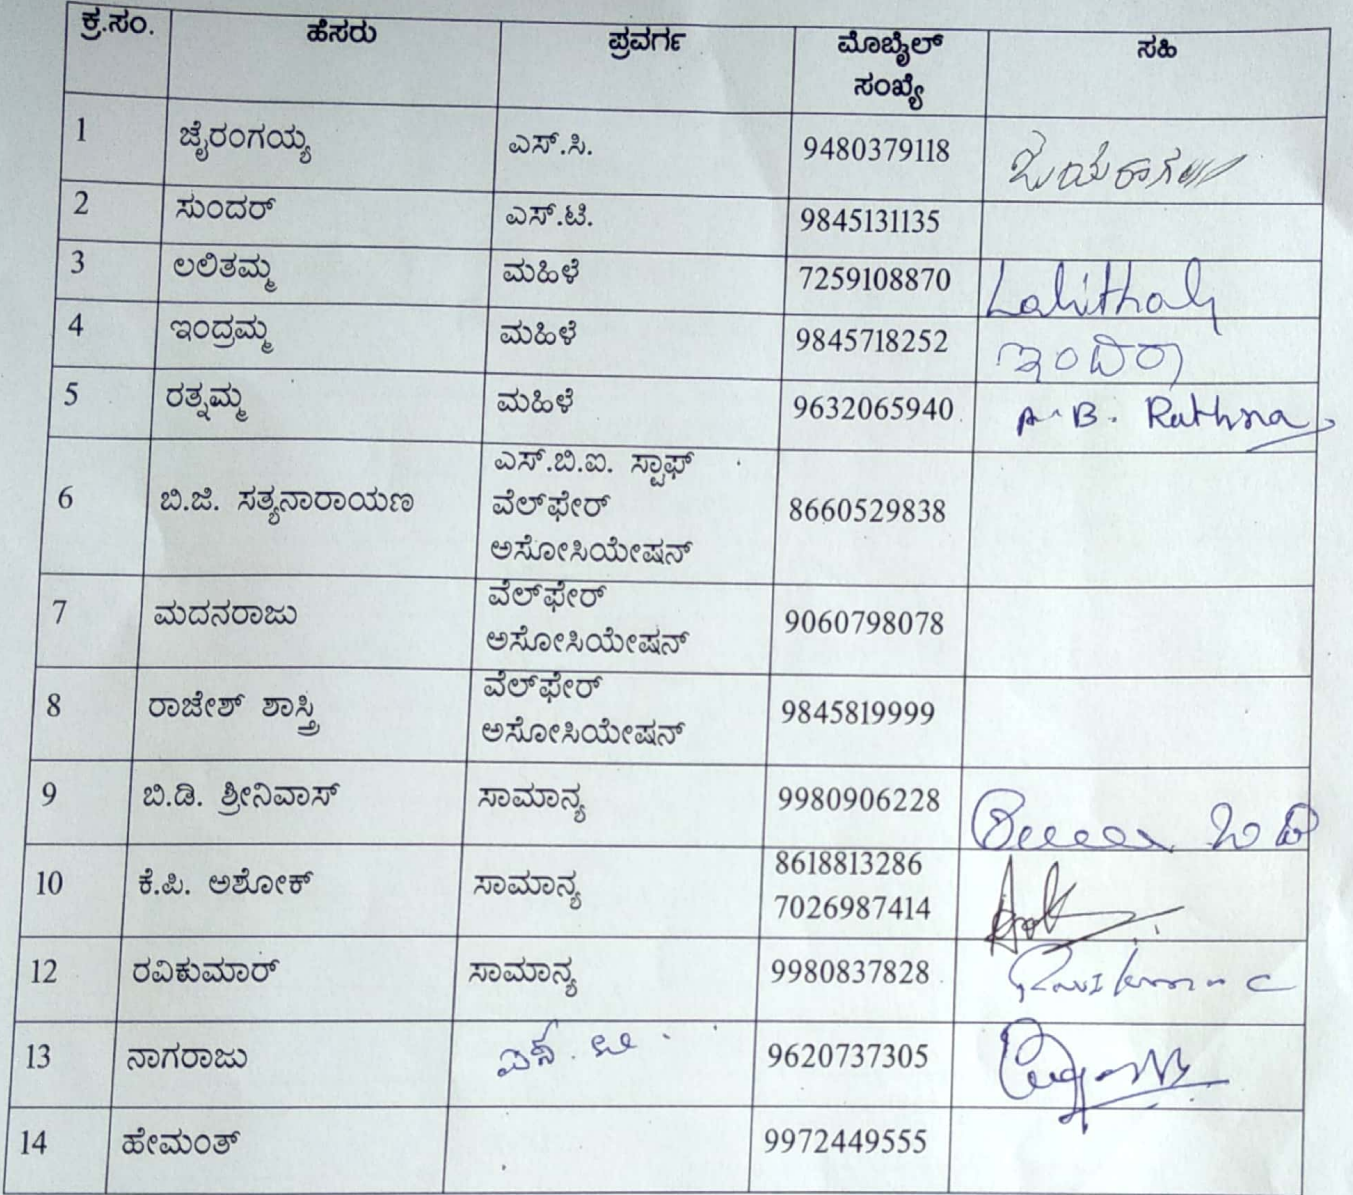 ಕ್ರ.ಸಂ. ಹೆಸರು ಪ್ರವರ್ಗ ಮೊಬೈಲ್ ಸಂಖ್ಯೆ ಸಹಿ
1 ಜೈರಂಗಯ್ಯ ಎಸ್.ಸಿ. 9480379118
2 ಸುಂದರ್ ಎಸ್.ಟಿ. 9845131135
3 ಲಲಿತಮ್ಮ ಮಹಿಳೆ 7259108870
4 ಇಂದ್ರಮ್ಮ ಮಹಿಳೆ 9845718252 ಇಂದಿರಾ
5 ರತ್ನಮ್ಮ ಮಹಿಳೆ 9632065940 A.B. Rathna
6 ಬಿ.ಜಿ. ಸತ್ಯನಾರಾಯಣ ಎಸ್.ಬಿ.ಐ. ಸ್ಟಾಫ್
ವೆಲ್‌ಫೇರ್
ಅಸೋಸಿಯೇಷನ್ 8660529838
7 ಮದನರಾಜು ವೆಲ್‌ಫೇರ್
ಅಸೋಸಿಯೇಷನ್ 9060798078
8 ರಾಜೇಶ್ ಶಾಸ್ತ್ರಿ ವೆಲ್‌ಫೇರ್
ಅಸೋಸಿಯೇಷನ್ 9845819999
9 ಬಿ.ಡಿ. ಶ್ರೀನಿವಾಸ್ ಸಾಮಾನ್ಯ 9980906228
10 ಕೆ.ಪಿ. ಅಶೋಕ್ ಸಾಮಾನ್ಯ 8618813286
7026987414
12 ರವಿಕುಮಾರ್ ಸಾಮಾನ್ಯ 9980837828
13 ನಾಗರಾಜು 9620737305
14 ಹೇಮಂತ್ 9972449555